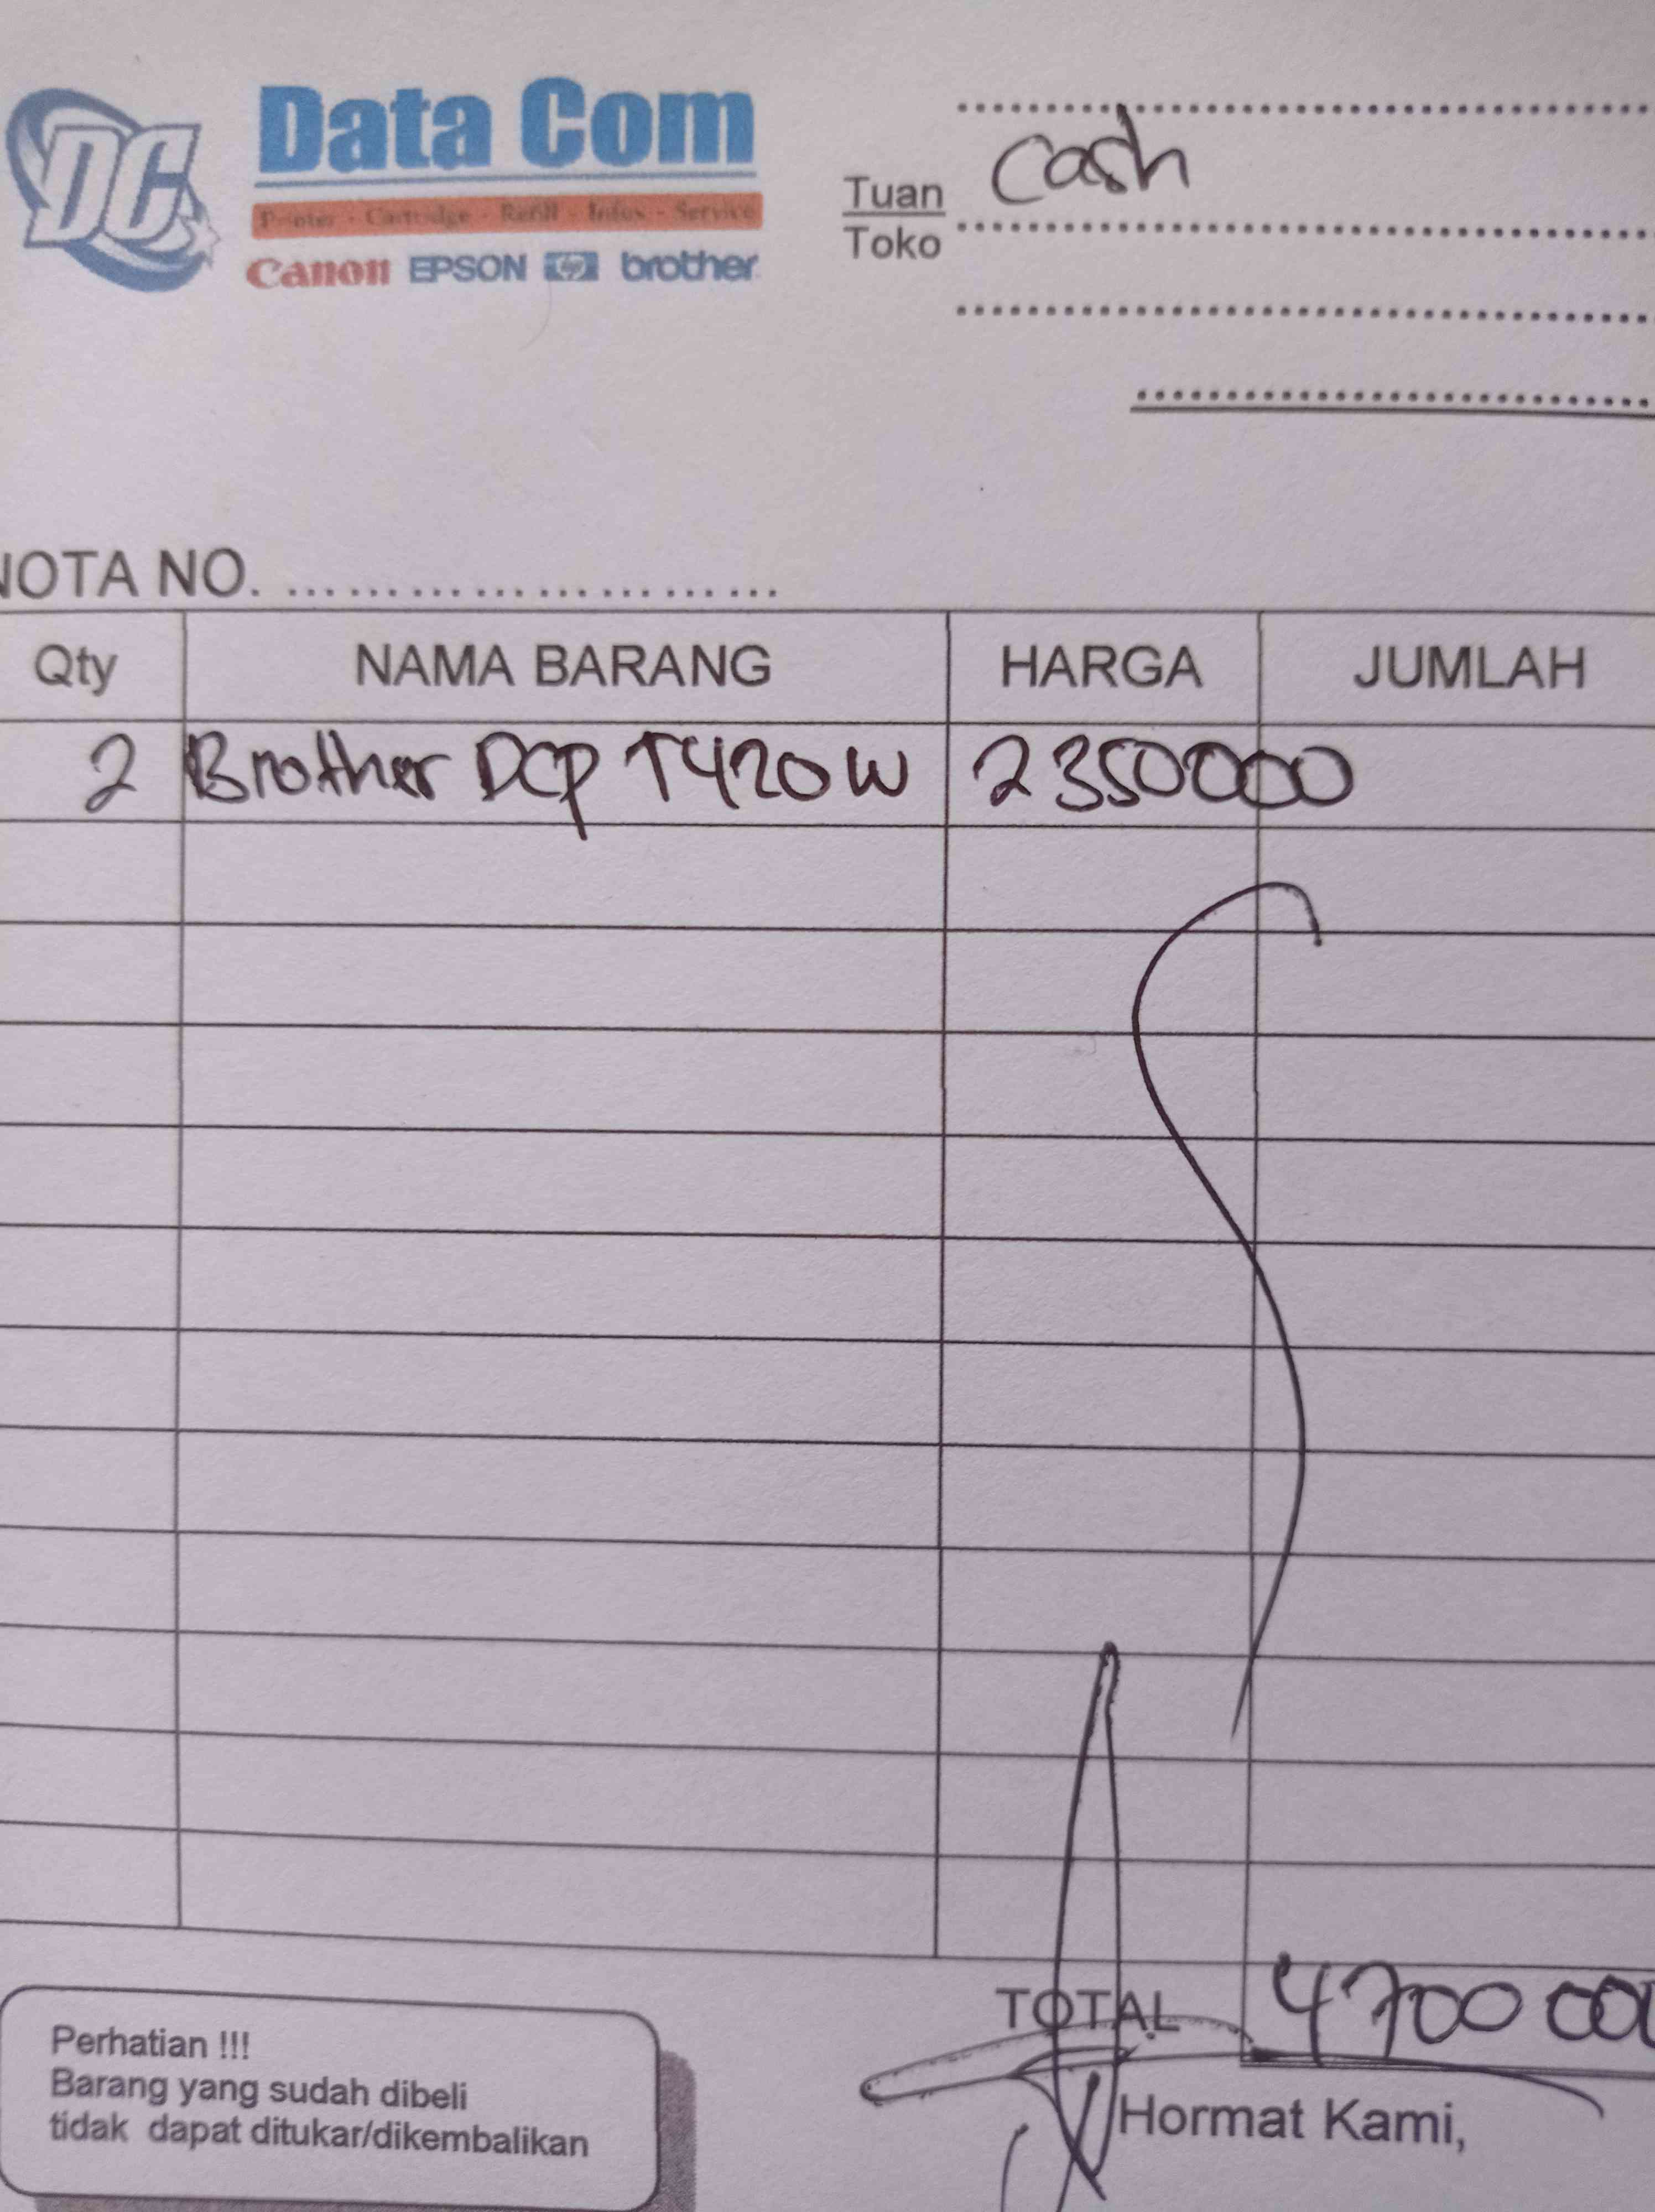 DC
Data Com
Printer - Cartridge - Refill - Infus - Service
Canon EPSON hp brother
Tuan
Toko
Cash
NOTA NO. ........................
Qty NAMA BARANG HARGA JUMLAH
2 Brother DCP T420W 2350000
TOTAL 4700 000
Perhatian !!!
Barang yang sudah dibeli
tidak dapat ditukar/dikembalikan
Hormat Kami,